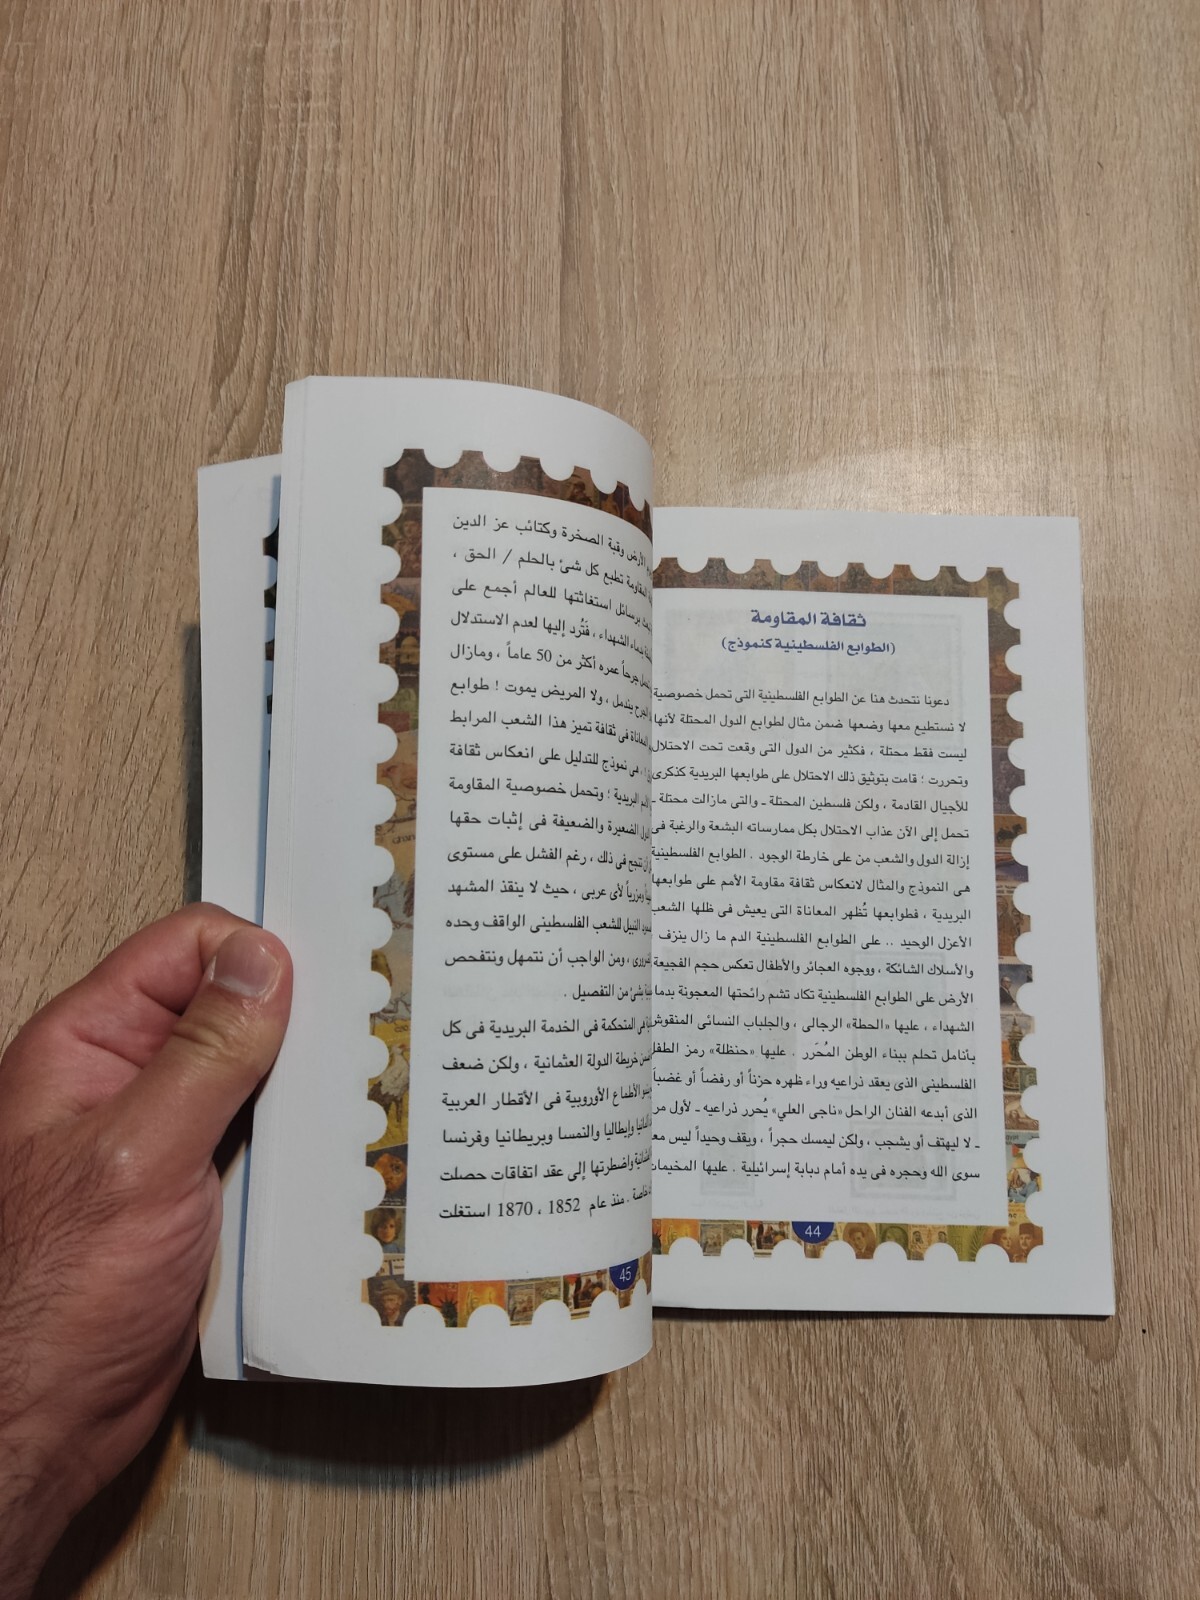 ثقافة المقاومة
(الطوابع الفلسطينية كنموذج)
دعونا نتحدث هنا عن الطوابع الفلسطينية التى تحمل خصوصية
لا نستطيع معها وضعها ضمن مثال لطوابع الدول المحتلة لأنها
ليست فقط محتلة ، فكثير من الدول التى وقعت تحت الاحتلال
وتحررت ؛ قامت بتوثيق ذلك الاحتلال على طوابعها البريدية كذكرى
للأجيال القادمة ، ولكن فلسطين المحتلة ـ والتى مازالت محتلة ـ
تحمل إلى الآن عذاب الاحتلال بكل ممارساته البشعة والرغبة فى
إزالة الدول والشعب من على خارطة الوجود . الطوابع الفلسطينية
هى النموذج والمثال لانعكاس ثقافة مقاومة الأمم على طوابعها
البريدية ، فطوابعها تُظهر المعاناة التى يعيش فى ظلها الشعب
الأعزل الوحيد .. على الطوابع الفلسطينية الدم ما زال ينزف
والأسلاك الشائكة ، ووجوه العجائز والأطفال تعكس حجم الفجيعة
الأرض على الطوابع الفلسطينية تكاد تشم رائحتها المعجونة بدماء
الشهداء ، عليها «الحطة» الرجالى ، والجلباب النسائى المنقوش
بأنامل تحلم ببناء الوطن المُحَرر . عليها «حنظلة» رمز الطفل
الفلسطينى الذى يعقد ذراعيه وراء ظهره حزناً أو رفضاً أو غضباً
الذى أبدعه الفنان الراحل «ناجى العلي» يُحرر ذراعيه ـ لأول
ـ لا ليهتف أو يشجب ، ولكن ليمسك حجراً ، ويقف وحيداً ليس
سوى الله وحجره فى يده أمام دبابة إسرائيلية . عليها المخيمات
44
الأرض وقبة الصخرة وكتائب عز الدين
المقاومة تطبع كل شئ بالحلم / الحق ،
برسائل استغاثتها للعالم أجمع على
بدماء الشهداء ، فَتُرد إليها لعدم الاستدلال
جرحاً عمره أكثر من 50 عاماً ، ومازال
الجرح يندمل ، ولا المريض يموت ! طوابع
المعاناة فى ثقافة تميز هذا الشعب المرابط
هى نموذج للتدليل على انعكاس ثقافة
البريدية ؛ وتحمل خصوصية المقاومة
الصغيرة والضعيفة فى إثبات حقها
تنجح فى ذلك ، رغم الفشل على مستوى
ومزرياً لأى عربى ، حيث لا ينقذ المشهد
النبيل للشعب الفلسطينى الواقف وحده
، ومن الواجب أن نتمهل ونتفحص
بشئ من التفصيل .
هى المتحكمة فى الخدمة البريدية فى كل
خريطة الدولة العثمانية ، ولكن ضعف
الأطماع الأوروبية فى الأقطار العربية
وإيطاليا والنمسا وبريطانيا وفرنسا
واضطرتها إلى عقد اتفاقات حصلت
خاصة . منذ عام 1852 ، 1870 استغلت
45